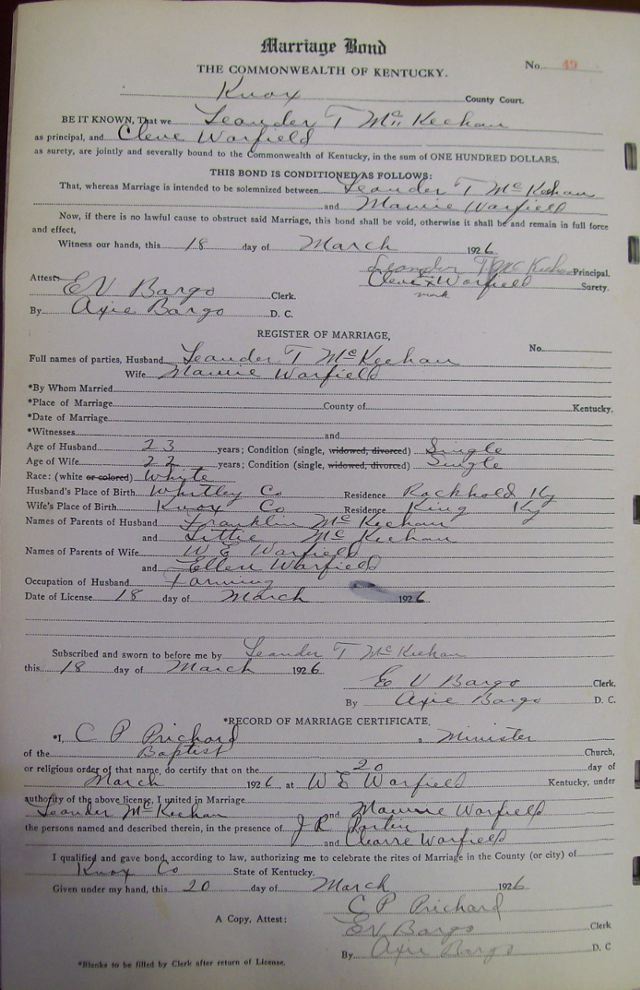 Marriage Bond
No. 49
THE COMMONWEALTH OF KENTUCKY.
Knox County Court.
BE IT KNOWN, That we Leander T McKeehan
as principal, and Cleve Warfield
as surety, are jointly and severally bound to the Commonwealth of Kentucky, in the sum of ONE HUNDRED DOLLARS,
THIS BOND IS CONDITIONED AS FOLLOWS:
That, whereas Marriage is intended to be solemnized between Leander T McKeehan
and Mamie Warfield
Now, if there is no lawful cause to obstruct said Marriage, this bond shall be void, otherwise it shall be and remain in full force
and effect,
Witness our hands, this 18 day of March 1926
Leander T McKeehan Principal.
Attest: Cleve x Warfield Surety.
mark
E V Bargo Clerk.
By Axie Bargo D. C.
REGISTER OF MARRIAGE,
No.
Full names of parties, Husband Leander T McKeehan
Wife Mamie Warfield
*By Whom Married
*Place of Marriage County of Kentucky.
*Date of Marriage
*Witnesses and
Age of Husband 23 years; Condition (single, widowed, divorced) Single
Age of Wife 22 years; Condition (single, widowed, divorced) Single
Race: (white or colored) White
Husband's Place of Birth Whitley Co Residence Rockhold Ky
Wife's Place of Birth Knox Co Residence King Ky
Names of Parents of Husband Franklin McKeehan
and Littie McKeehan
Names of Parents of Wife W E Warfield
and Ellen Warfield
Occupation of Husband Farming
Date of License 18 day of March 1926
Subscribed and sworn to before me by Leander T McKeehan
this 18 day of March 1926
E V Bargo Clerk.
By Axie Bargo D. C.
*RECORD OF MARRIAGE CERTIFICATE,
*I, C P Prichard a Minister
of the Baptist Church,
or religious order of that name, do certify that on the 20 day of
March 1926 at W E Warfield Kentucky, under
authority of the above license, I united in Marriage
Leander McKeehan and Mamie Warfield
the persons named and described therein, in the presence of J R
and Warfield
I qualified and gave bond, according to law, authorizing me to celebrate the rites of Marriage in the County (or city) of
Knox Co State of Kentucky.
Given under my hand, this 20 day of March 1926
C P Prichard
A Copy, Attest: E V Bargo Clerk
By Axie Bargo D. C
*Blanks to be filled by Clerk after return of License.